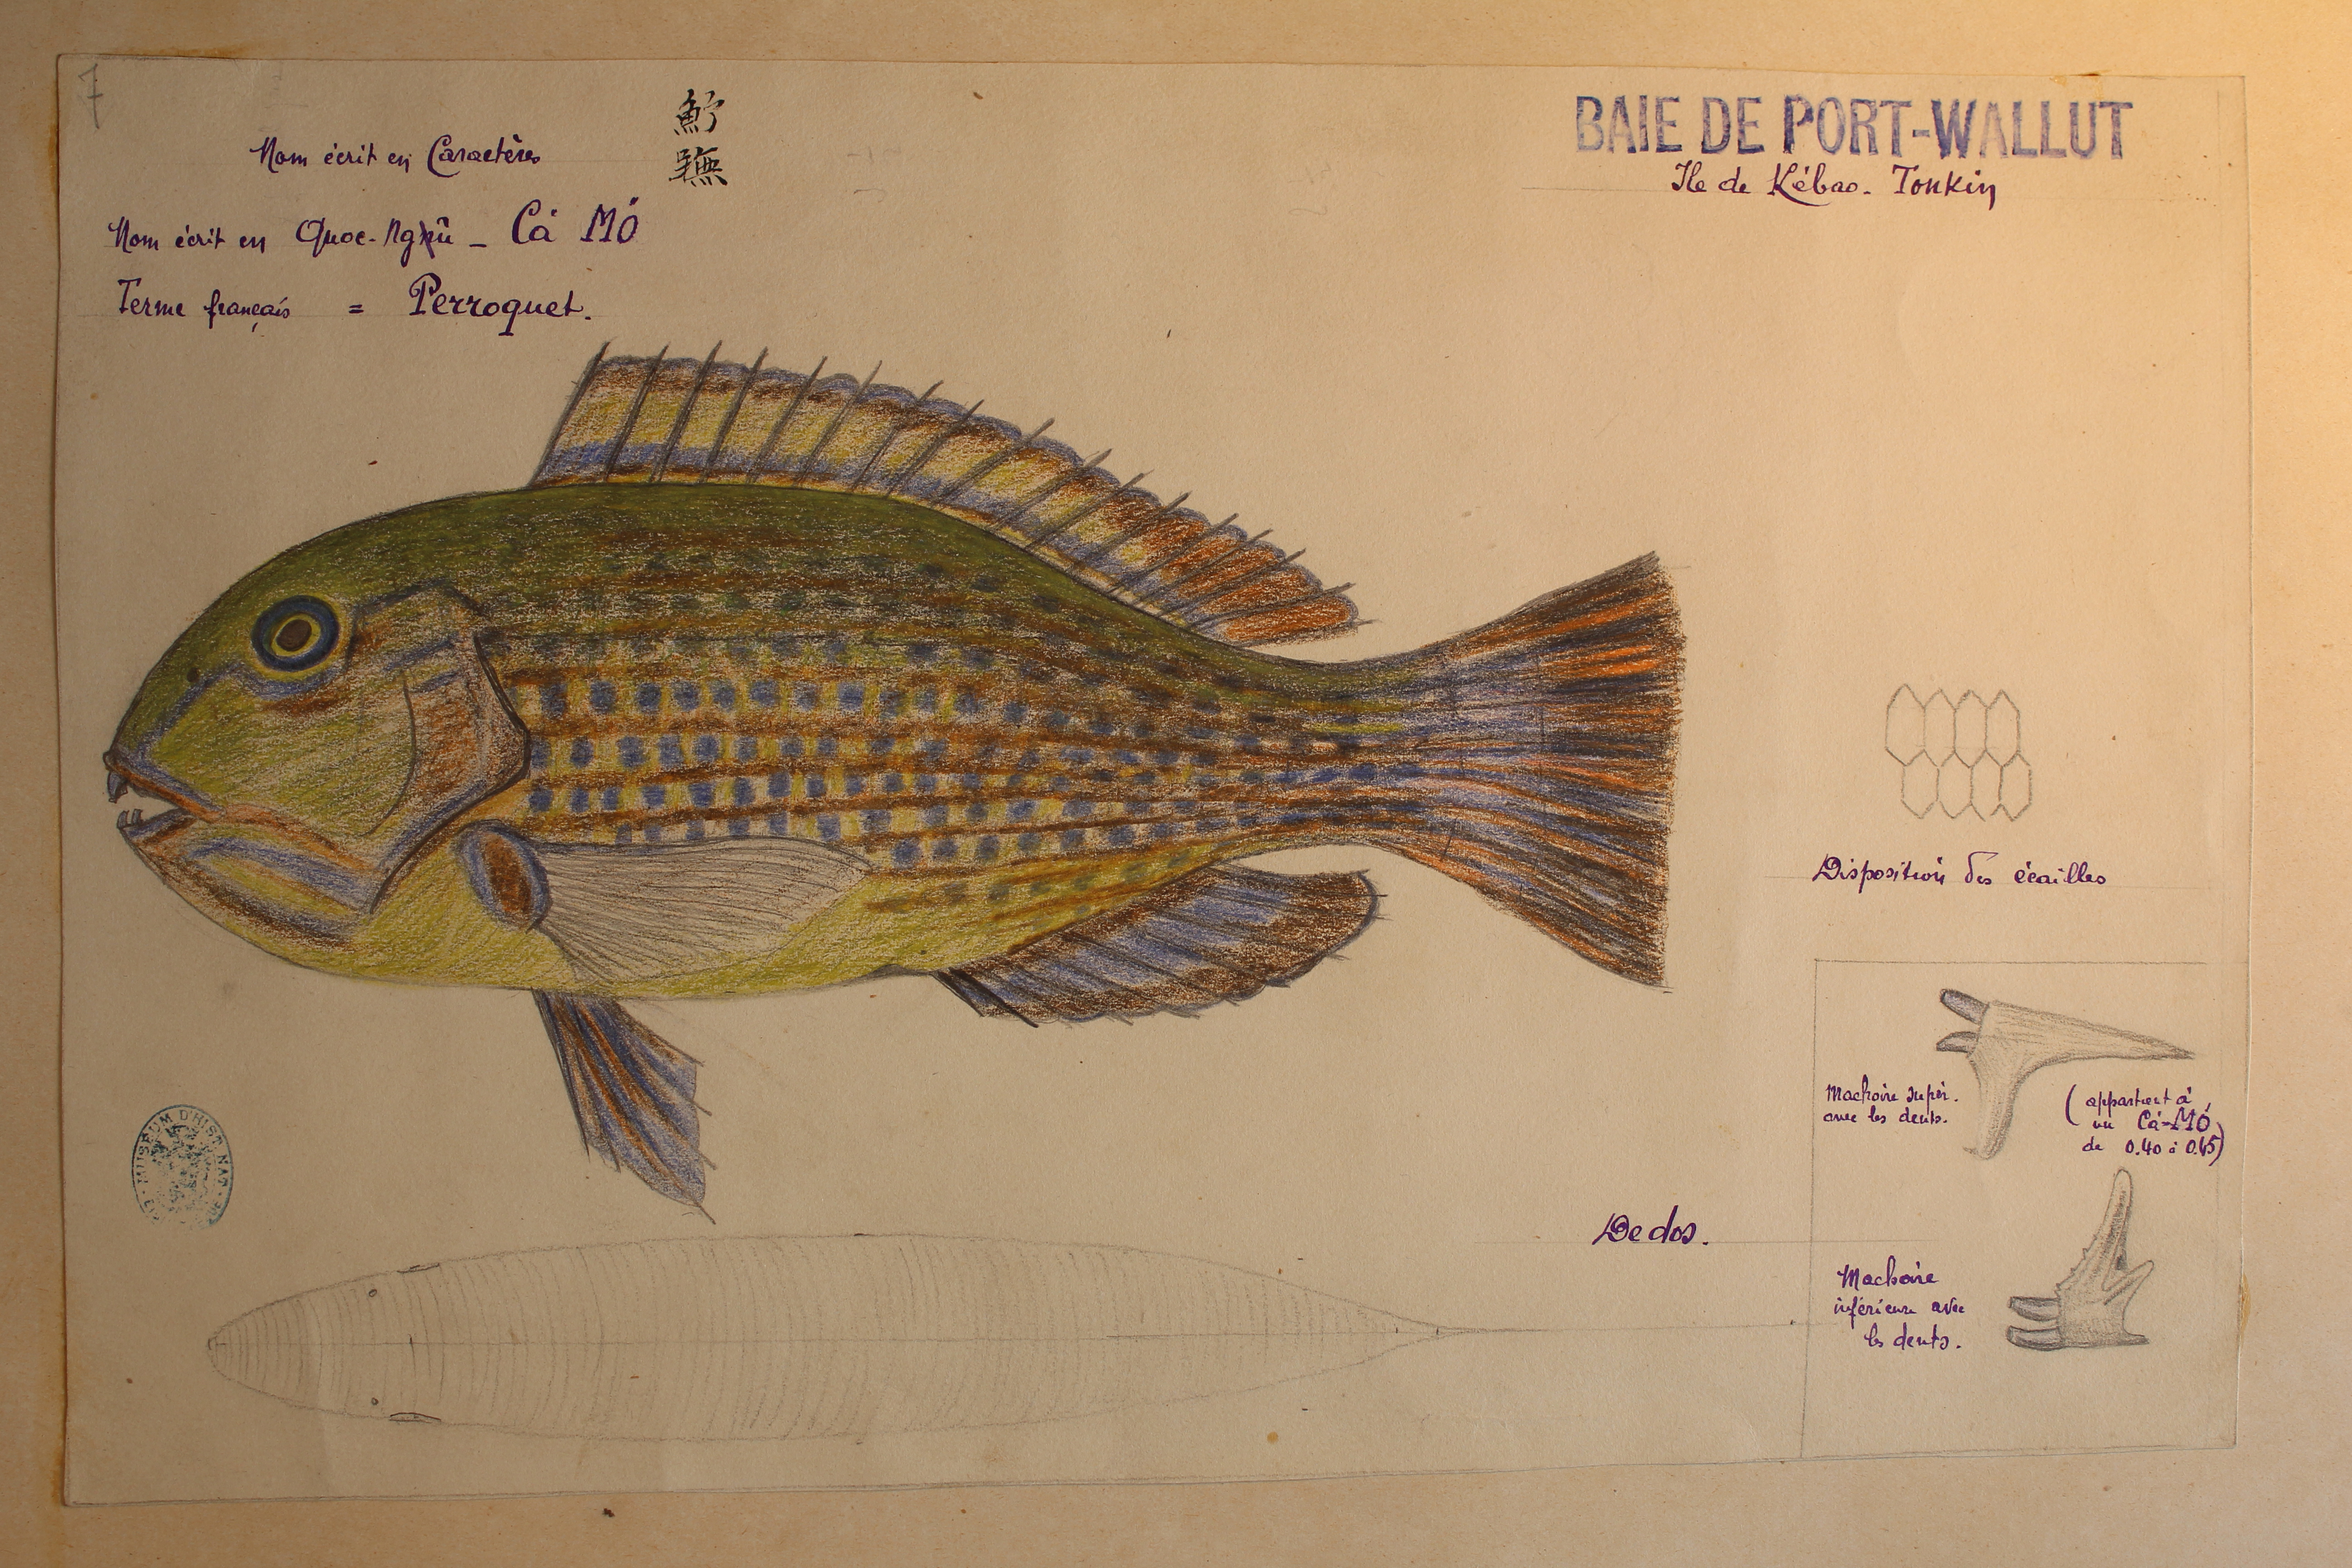 7
Nom écrit en Caractères
Nom écrit en Quoc-Ngữ - Cá Mó
Terme français = Perroquet.
BAIE DE PORT-WALLUT
Ile de Kébao. Tonkin
Disposition des écailles
Machoire supér.
avec les dents.
(appartient à
un Cá-Mó
de 0.40 à 0.45)
Machoire
inférieure avec
les dents.
De dos.
MUSEUM D'HIST. NAT.